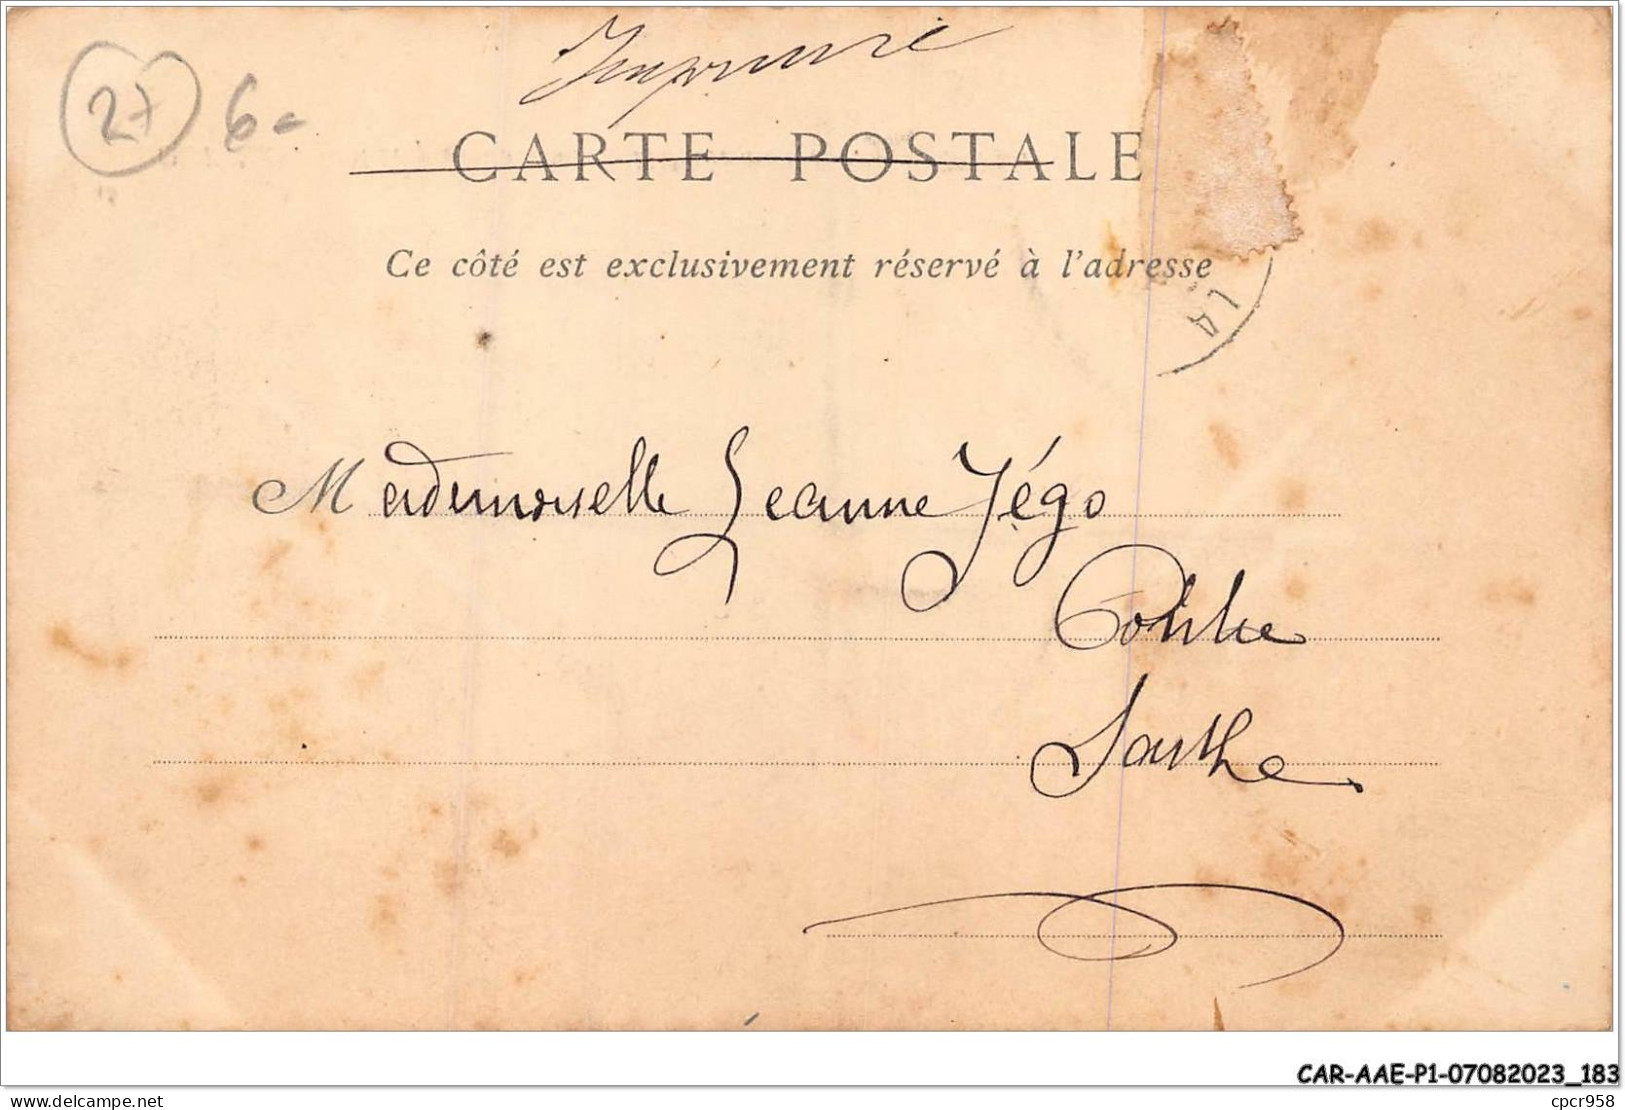 Imprimé
27 6-
CARTE POSTALE
Ce côté est exclusivement réservé à l'adresse
14
Mademoiselle Jeanne Jégo
Sarthe
CAR-AAE-P1-07082023_183
delcampe.net
cpcr958